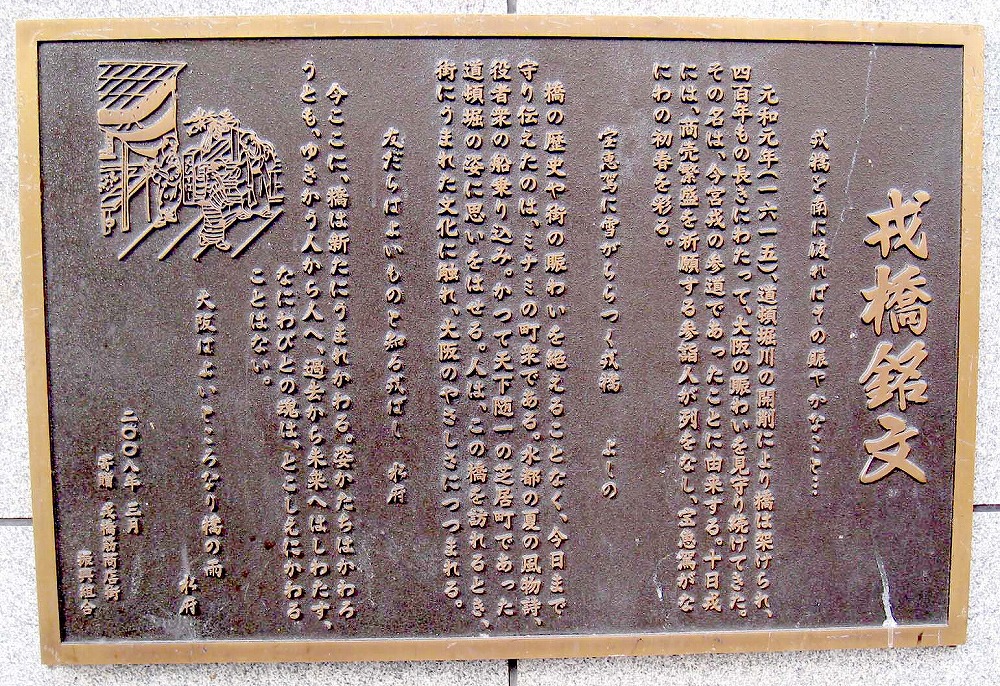 戎橋銘文
戎橋を南に渡ればその賑やかなこと…
元和元年(一六一五)、道頓堀川の開削により橋は架けられ、
四百年もの長きにわたって、大阪の賑わいを見守り続けてきた。
その名は、今宮戎の参道であったことに由来する。十日戎
には、商売繁盛を祈願する参詣人が列をなし、宝恵駕がな
にわの初春を彩る。
宝恵駕に雪がちらつく戎橋 よしの
橋の歴史や街の賑わいを絶えることなく、今日まで
守り伝えたのは、ミナミの町衆である。水都の夏の風物詩、
役者衆の船乗り込み。かつて天下随一の芝居町であった
道頓堀の姿に思いをはせる。人は、この橋を訪れるとき、
街にうまれた文化に触れ、大阪のやさしさにつつまれる。
友だちはよいものと知る戎ばし 水府
今ここに、橋は新たにうまれかわる。姿かたちはかわろ
うとも、ゆきかう人から人へ、過去から未来へはしわたす、
なにわびとの魂は、とこしえにかわる
ことはない。
大阪はよいところなり橋の雨
水府
二〇〇八年 三月
寄贈 戎橋筋商店街
振興組合